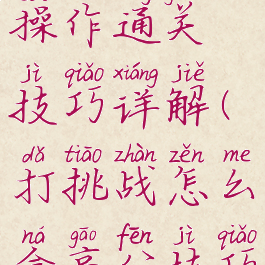 操作通关
jì qiǎo xiáng jiě
技巧详解(
dǎ tiāo zhàn zěn me
打挑战怎么
ná gāo fēn jì qiǎo
拿高分技巧